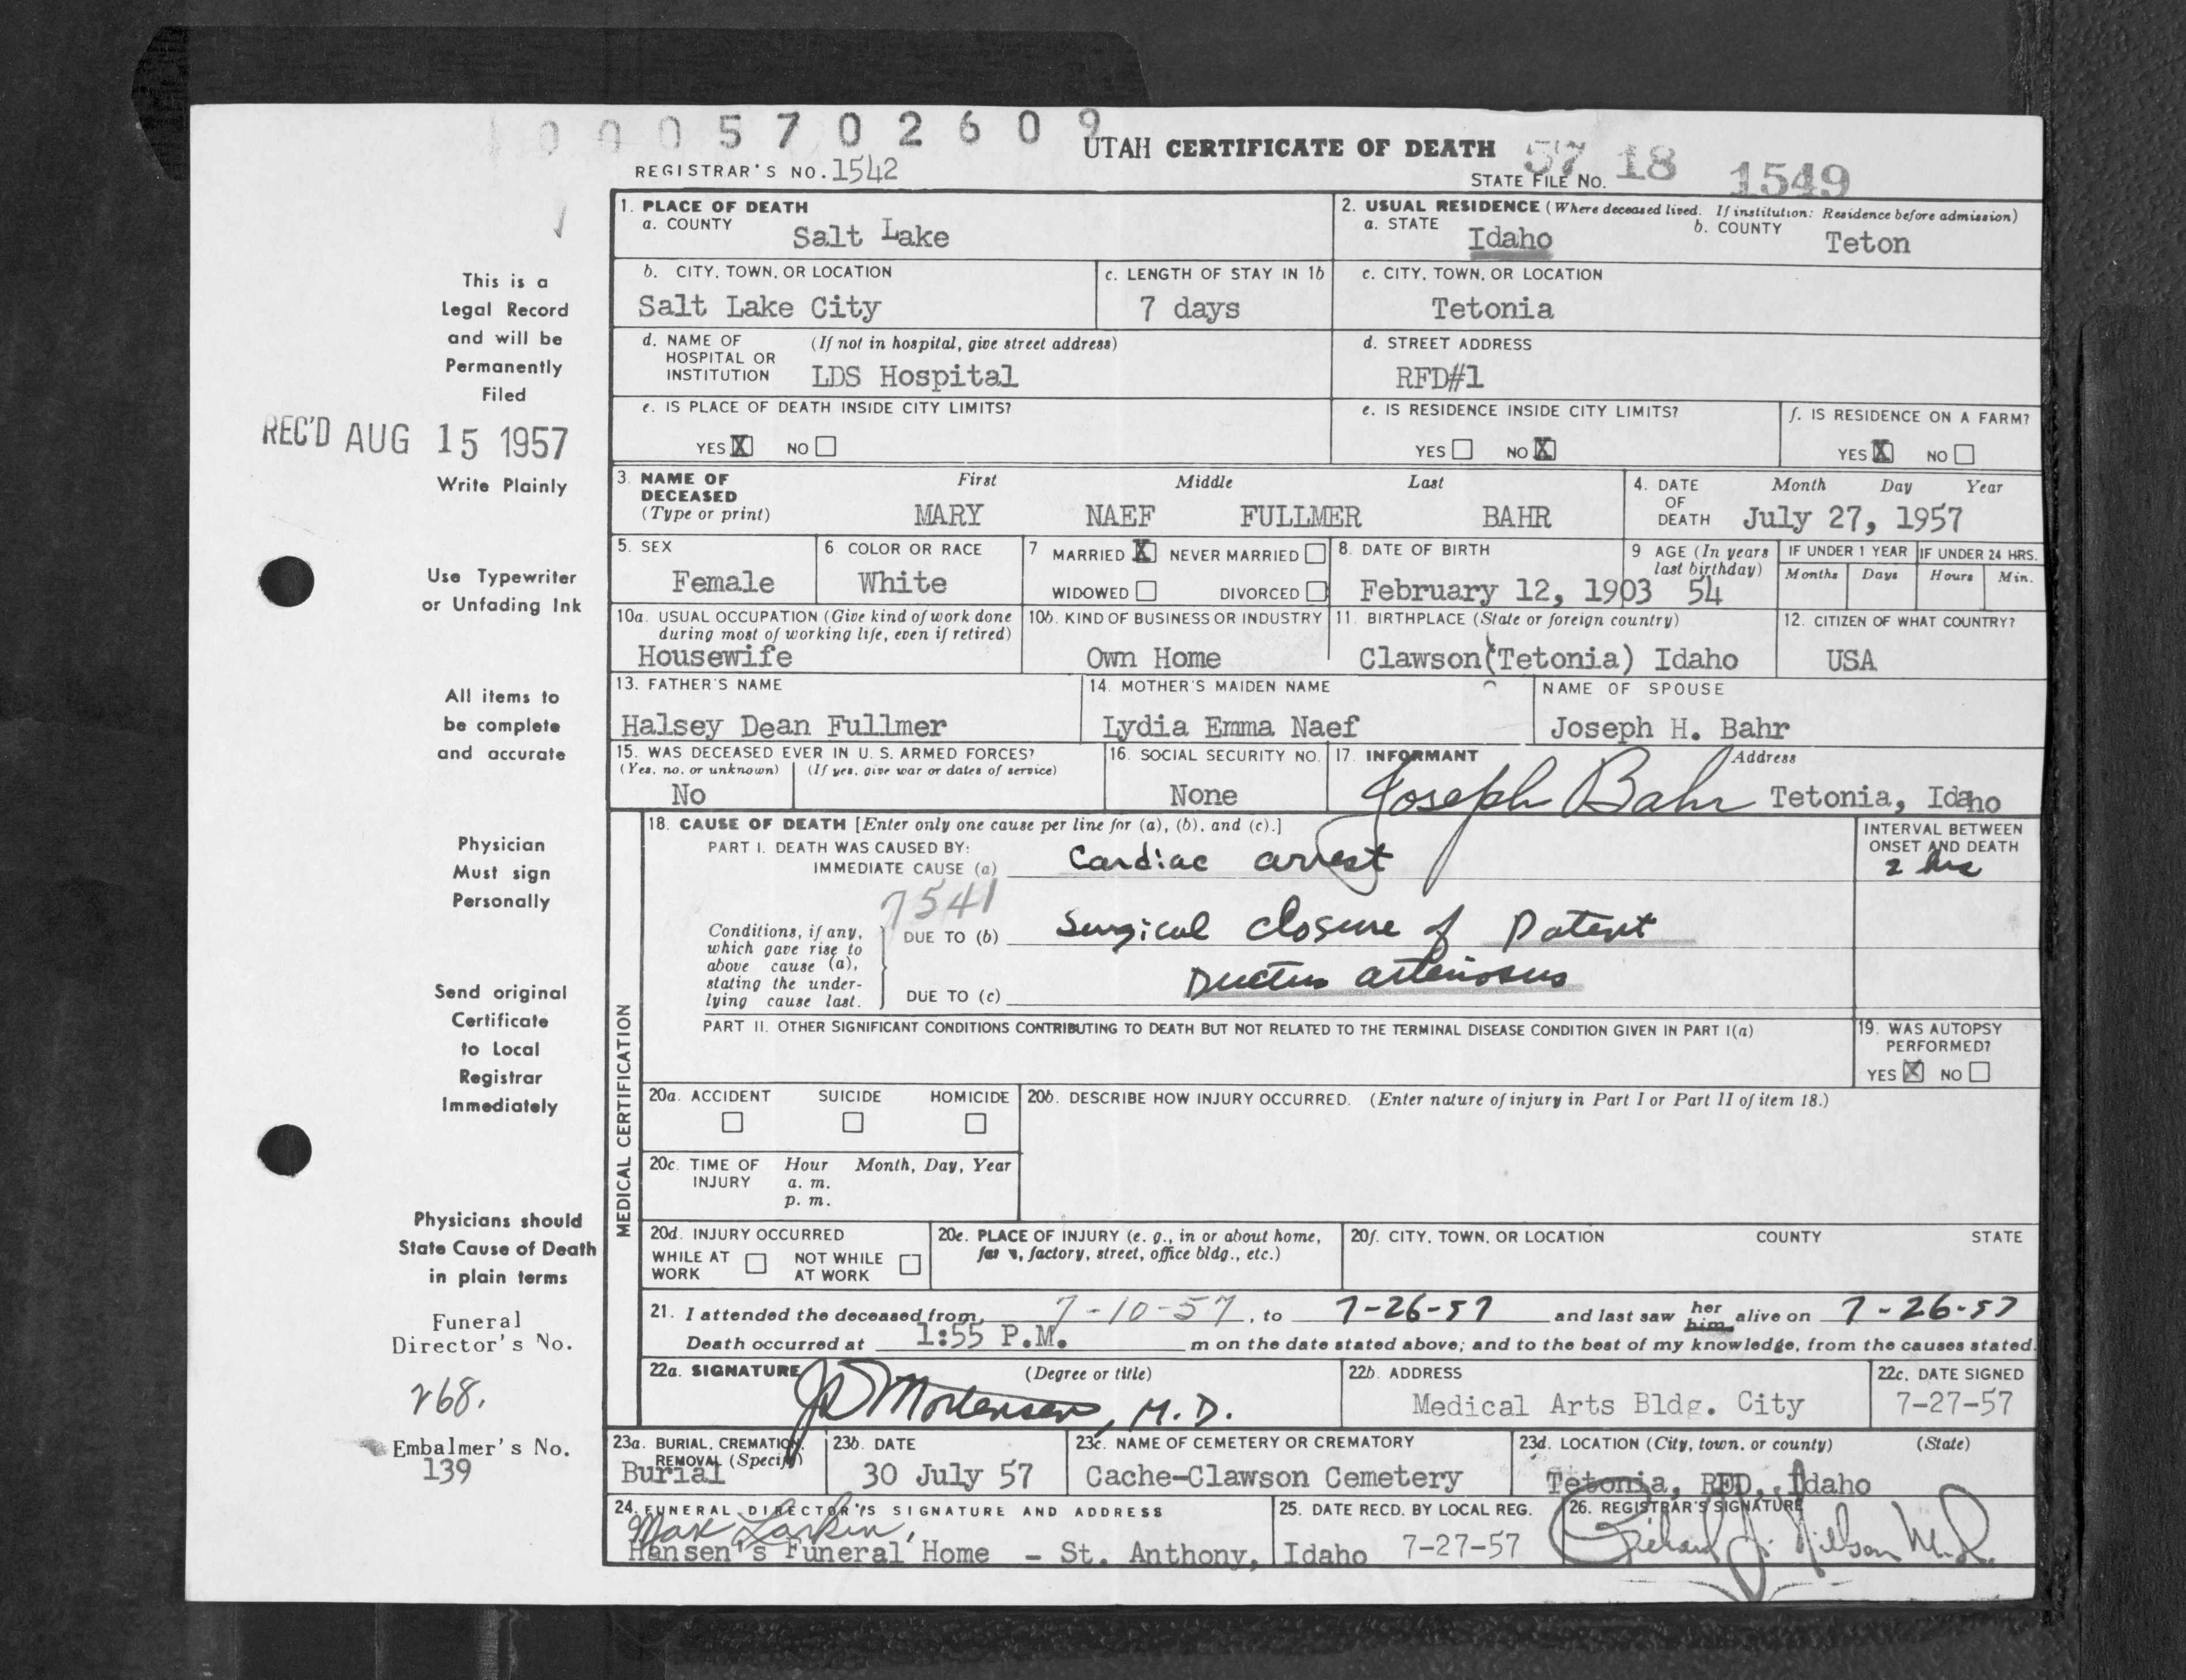 0005702609
UTAH CERTIFICATE OF DEATH
REGISTRAR'S NO. 1542
STATE FILE NO. 57 18 1549
1. PLACE OF DEATH
a. COUNTY Salt Lake
2. USUAL RESIDENCE (Where deceased lived. If institution: Residence before admission)
a. STATE Idaho b. COUNTY Teton
b. CITY, TOWN, OR LOCATION
Salt Lake City
c. LENGTH OF STAY IN 1b
7 days
c. CITY, TOWN, OR LOCATION
Tetonia
d. NAME OF HOSPITAL OR INSTITUTION (If not in hospital, give street address)
LDS Hospital
d. STREET ADDRESS
RFD#1
e. IS PLACE OF DEATH INSIDE CITY LIMITS?
YES X NO
e. IS RESIDENCE INSIDE CITY LIMITS?
YES NO X
f. IS RESIDENCE ON A FARM?
YES X NO
3. NAME OF DECEASED (Type or print)
First Middle Last
MARY NAEF FULLMER BAHR
4. DATE OF DEATH Month Day Year
July 27, 1957
5. SEX
Female
6. COLOR OR RACE
White
7 MARRIED X NEVER MARRIED
WIDOWED DIVORCED
8. DATE OF BIRTH
February 12, 1903
9 AGE (In years last birthday)
54
IF UNDER 1 YEAR
Months Days
IF UNDER 24 HRS.
Hours Min.
10a. USUAL OCCUPATION (Give kind of work done during most of working life, even if retired)
Housewife
10b. KIND OF BUSINESS OR INDUSTRY
Own Home
11. BIRTHPLACE (State or foreign country)
Clawson(Tetonia) Idaho
12. CITIZEN OF WHAT COUNTRY?
USA
13. FATHER'S NAME
Halsey Dean Fullmer
14. MOTHER'S MAIDEN NAME
Lydia Emma Naef
NAME OF SPOUSE
Joseph H. Bahr
15. WAS DECEASED EVER IN U. S. ARMED FORCES?
(Yes, no, or unknown) (If yes, give war or dates of service)
No
16. SOCIAL SECURITY NO.
None
17. INFORMANT Address
Joseph Bahr Tetonia, Idaho
MEDICAL CERTIFICATION
18. CAUSE OF DEATH [Enter only one cause per line for (a), (b), and (c).]
PART I. DEATH WAS CAUSED BY:
IMMEDIATE CAUSE (a) Cardiac arrest
INTERVAL BETWEEN ONSET AND DEATH
2 hrs
7541
Conditions, if any, which gave rise to above cause (a), stating the underlying cause last.
DUE TO (b) Surgical closure of Patent
Ductus arteriosus
DUE TO (c)
PART II. OTHER SIGNIFICANT CONDITIONS CONTRIBUTING TO DEATH BUT NOT RELATED TO THE TERMINAL DISEASE CONDITION GIVEN IN PART I(a)
19. WAS AUTOPSY PERFORMED?
YES X NO
20a. ACCIDENT SUICIDE HOMICIDE
20b. DESCRIBE HOW INJURY OCCURRED. (Enter nature of injury in Part I or Part II of item 18.)
20c. TIME OF INJURY Hour Month, Day, Year
a. m.
p. m.
20d. INJURY OCCURRED
WHILE AT WORK NOT WHILE AT WORK
20e. PLACE OF INJURY (e. g., in or about home, farm, factory, street, office bldg., etc.)
20f. CITY, TOWN, OR LOCATION COUNTY STATE
21. I attended the deceased from 7-10-57, to 7-26-57 and last saw her him alive on 7-26-57
Death occurred at 1:55 P.M. m on the date stated above; and to the best of my knowledge, from the causes stated.
22a. SIGNATURE (Degree or title)
JD Mortensen, M.D.
22b. ADDRESS
Medical Arts Bldg. City
22c. DATE SIGNED
7-27-57
23a. BURIAL, CREMATION, REMOVAL (Specify)
Burial
23b. DATE
30 July 57
23c. NAME OF CEMETERY OR CREMATORY
Cache-Clawson Cemetery
23d. LOCATION (City, town, or county) (State)
Tetonia, RFD, Idaho
24. FUNERAL DIRECTOR'S SIGNATURE AND ADDRESS
Max Larkin,
Hansen's Funeral Home - St. Anthony, Idaho
25. DATE RECD. BY LOCAL REG.
7-27-57
26. REGISTRAR'S SIGNATURE
Richard J. Nilson M.D.
This is a
Legal Record
and will be
Permanently
Filed
REC'D AUG 15 1957
Write Plainly
Use Typewriter
or Unfading Ink
All items to
be complete
and accurate
Physician
Must sign
Personally
Send original
Certificate
to Local
Registrar
Immediately
Physicians should
State Cause of Death
in plain terms
Funeral
Director's No.
268.
Embalmer's No.
139